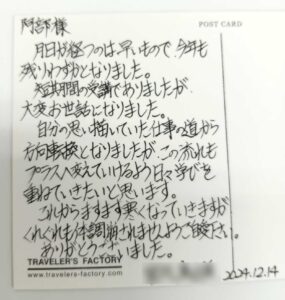 阿部様
POST CARD
月日が経つのは早いもので、今年も
残りわずかとなりました。
短期間の受講でありましたが
大変お世話になりました。
自分の思い描いていた仕事の道から
方向転換となりましたが、この流れも
プラスへ変えていけるよう日々学びを
重ねていきたいと思います。
これからますます寒くなっていきますが
くれぐれも体調崩されませんようご自愛下さい。
ありがとうございました。
TRAVELER'S FACTORY
www.travelers-factory.com
2024.12.14